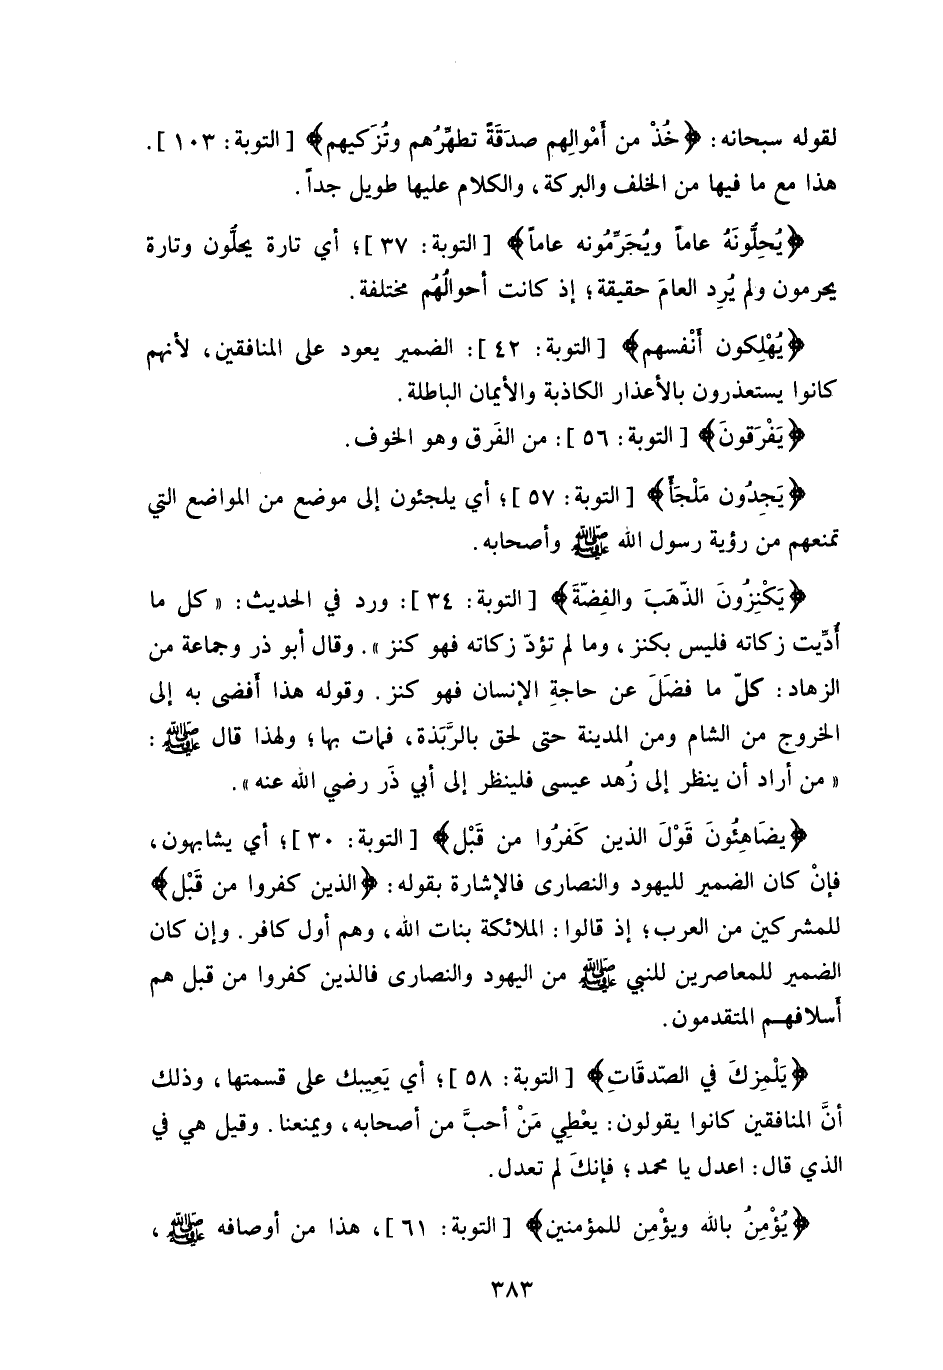 لقوله سبحانه: ﴿خُذْ من أَمْوالِهم صدَقَةً تطهِّرُهم وتُزَكيهم﴾ [التوبة: ١٠٣].
هذا مع ما فيها من الخلف والبركة، والكلام عليها طويل جداً.
﴿يُحِلُّونَهُ عاماً ويُحَرِّمُونه عاماً﴾ [التوبة: ٣٧]؛ أي تارة يحلُّون وتارة
يحرمون ولم يُرِد العامَ حقيقة؛ إذ كانت أحوالُهُم مختلفة.
﴿يُهْلِكون أَنْفسهم﴾ [التوبة: ٤٢]: الضمير يعود على المنافقين، لأنهم
كانوا يستعذرون بالأعذار الكاذبة والأيمان الباطلة.
﴿يَفْرَقونَ﴾ [التوبة: ٥٦]: من الفَرق وهو الخوف.
﴿يَجِدُون مَلْجَأً﴾ [التوبة: ٥٧]؛ أي يلجئون إلى موضع من المواضع التي
تمنعهم من رؤية رسول الله ﷺ وأصحابه.
﴿يَكْنِزُونَ الذّهَبَ والفِضّةَ﴾ [التوبة: ٣٤]: ورد في الحديث: «كل ما
أُدِّيت زكاته فليس بكنز، وما لم تؤدّ زكاته فهو كنز». وقال أبو ذر وجماعة من
الزهاد: كلّ ما فضَلَ عن حاجةِ الإنسان فهو كنز. وقوله هذا أَفضى به إلى
الخروج من الشام ومن المدينة حتى لحق بالرَّبَذة، فمات بها؛ ولهذا قال ﷺ:
«من أراد أن ينظر إلى زُهد عيسى فلينظر إلى أبي ذَر رضي الله عنه».
﴿يضَاهِئُونَ قَوْلَ الذين كَفرُوا من قَبْل﴾ [التوبة: ٣٠]؛ أي يشابهون،
فإنْ كان الضمير لليهود والنصارى فالإشارة بقوله: ﴿الذين كفروا من قَبْل﴾
للمشركين من العرب؛ إذ قالوا: الملائكة بنات الله، وهم أول كافر. وإن كان
الضمير للمعاصرين للنبي ﷺ من اليهود والنصارى فالذين كفروا من قبل هم
أَسلافهم المتقدمون.
﴿يَلْمِزكَ في الصّدقَاتِ﴾ [التوبة: ٥٨]؛ أي يَعِيبك على قسمتها، وذلك
أنَّ المنافقين كانوا يقولون: يعْطِي مَنْ أحبَّ من أصحابه، ويمنعنا. وقيل هي في
الذي قال: اعدل يا محمد؛ فإنكَ لم تعدل.
﴿يُؤْمِنُ بالله ويؤْمِن للمؤمنين﴾ [التوبة: ٦١]، هذا من أوصافه ﷺ،
٣٨٣